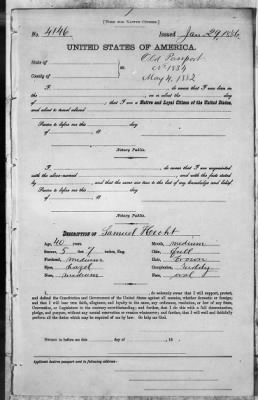 [FORM FOR NATIVE CITIZEN.]
No. 4146 Issued Jan 29, 1886
UNITED STATES OF AMERICA.
State of Old Passport
ss. No 1834
County of May 4, 1882
I do swear that I was born in
the on or about the day
of , that I am a Native and Loyal Citizen of the United States,
and about to travel abroad
Sworn to before me this day
of , 18
Notary Public.
I do swear that I am acquainted
with the above-named and with the facts stated
by and that the same are true to the best of my knowledge and belief
Sworn to before me this day
of , 18
Notary Public.
DESCRIPTION OF Samuel Hecht
Age, 40 years. Mouth, medium
Stature, 5 feet 7 inches, Eng. Chin, full
Forehead, medium Hair, brown
Eyes, hazel Complexion, ruddy
Nose, medium Face, oval
I, do solemnly swear that I will support, protect,
and defend the Constitution and Government of the United States against all enemies, whether domestic or foreign;
and that I will bear true faith, allegiance, and loyalty to the same, any ordinance, resolution, or law of any State,
Convention, or Legislature to the contrary notwithstanding; and further, that I do this with a full determination,
pledge, and purpose, without any mental reservation or evasion whatsoever; and further, that I will well and faithfully
perform all the duties which may be required of me by law. So help me God.
Sworn to before me this day of 18
Applicant desires passport to be sent to